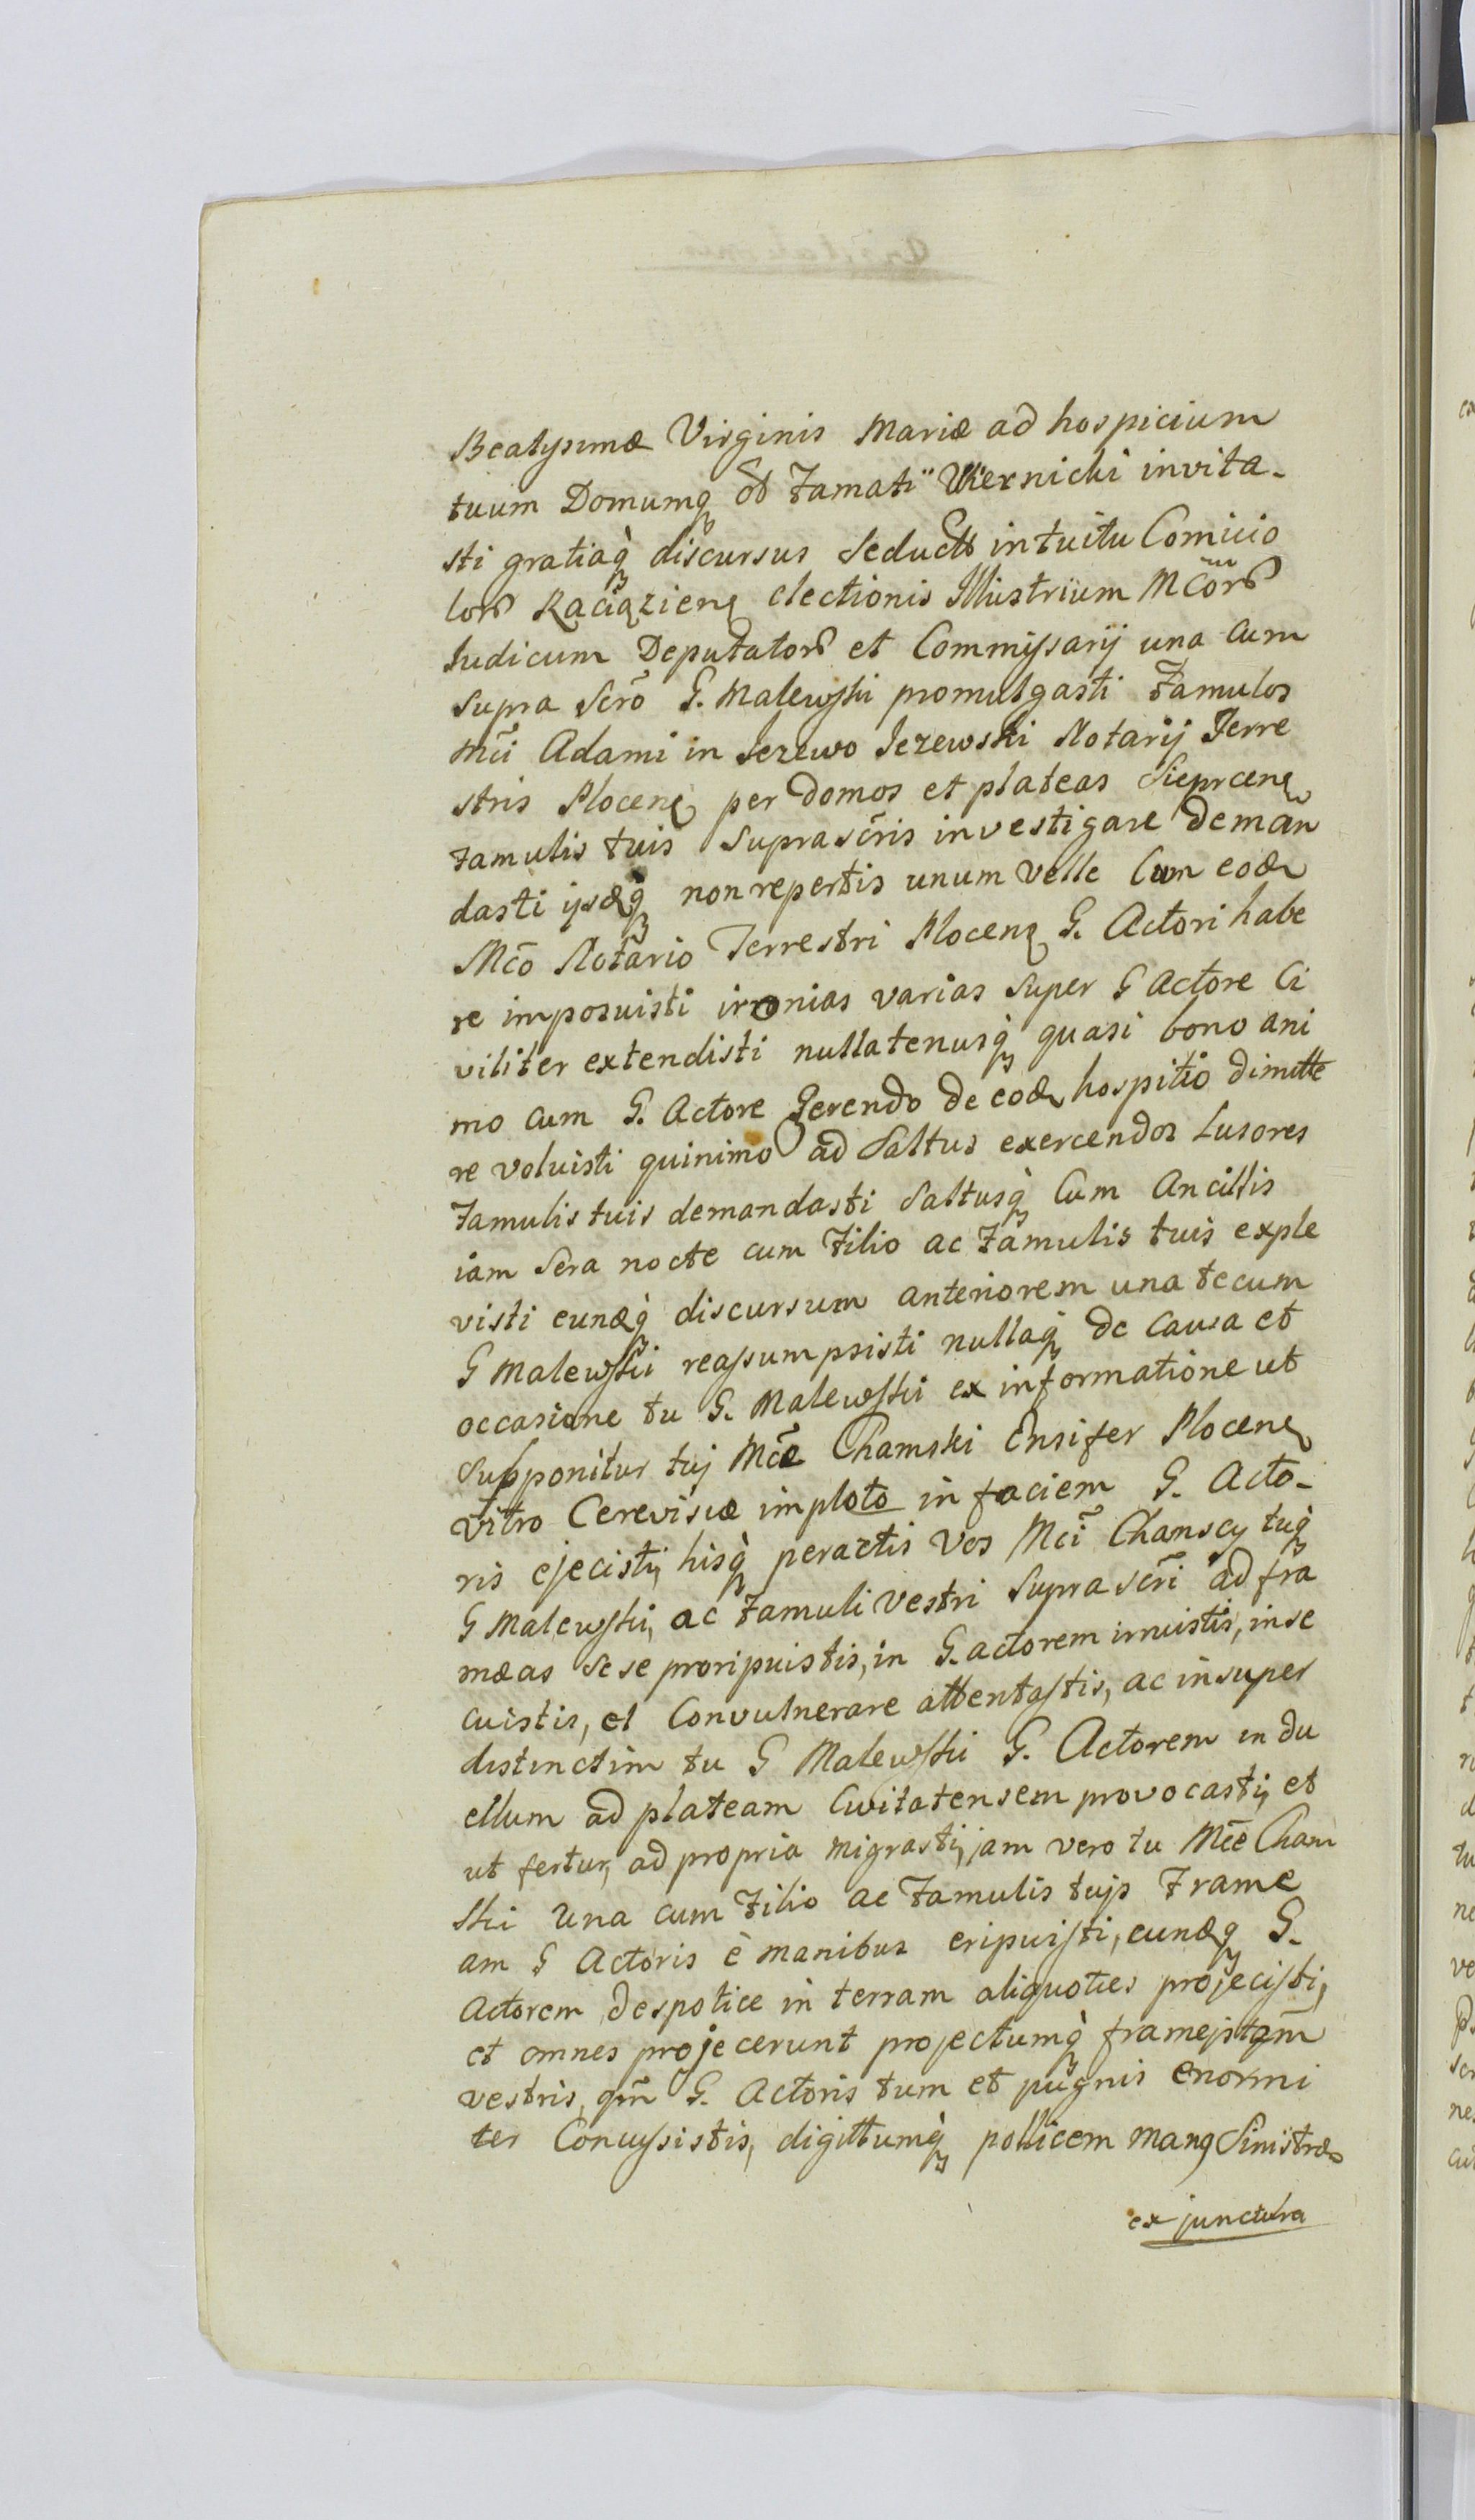 Beatyssimæ Virginis Mariæ ad hospicium
tuum Domumq́ Famati Wiernicki invita-
sti gratiaq́ discursus seducti intuitu Comicio
lorƺ Raciązienꝫ electionis Illustrium Mc̃orƺ
Iudicum Deputatorƺ et Commyssarij una cum
supra scr̃o G. Malewski promulgasti Famulos
Mc̃i Adami in Jezewo Jezewski Notarij Terre
stris Plocenꝫ per domos et plateas Sieprcenꝫ
Famulis tuis suprascr̃is investigare deman
dasti ijsdeq́ non repertis unum velle Cum eodē
Mc̃o Notario Terrestri Plocenꝫ G. Actori habe
re imposuisti irronias varias super G Actore Ci
viliter extendisti nullatenusq́ quasi bono ani
mo cum G. Actore gerendo de eodē hospitio dimitte
re voluisti quinimo ad saltus exercendos Lusores
Famulis tuis demandasti saltusq́ Cum Ancillis
iam sera nocte cum Filio ac Famulis tuis exple
visti eundēq́ discursum anteriorem una tecum
G Malewski reassumpsisti nullaq́ de causa et
occasione tu G. Malewski ex informatione ut
supponitur tuj Mc̃e Chamski Ensifer Plocenꝫ
vitro Cerevisiæ imploto in faciem G. Acto-
ris ejecisti, hisq́ peractis vos Mc̃i Chamscy tuq́
G Malewski, ac Famuli vestri suprascr̃i ad fra
mæas sese proripuistis, in G. actorem irruistis, inse
cuistis, et Convulnerare attentastis, ac insuper
distinctim tu G Malewski G. Actorem in du
ellum ad plateam Civitatensem provocasti, et
ut fertur, ad propria migrasti, jam vero tu Mc̃e Cham
ski Una cum Filio ac Famulis tujs Frame
am G Actoris è manibus eripuisti, eundēq G.
Actorem despotice in terram aliquoties projecisti,
et omnes projecerunt projectumq́ framejs tqm̃
vestris, qm̃ G. Actoris tum et pugnis enormi
ter Concussistis, digittumq́ pollicem manꝯ Sinistræ
ex junctura